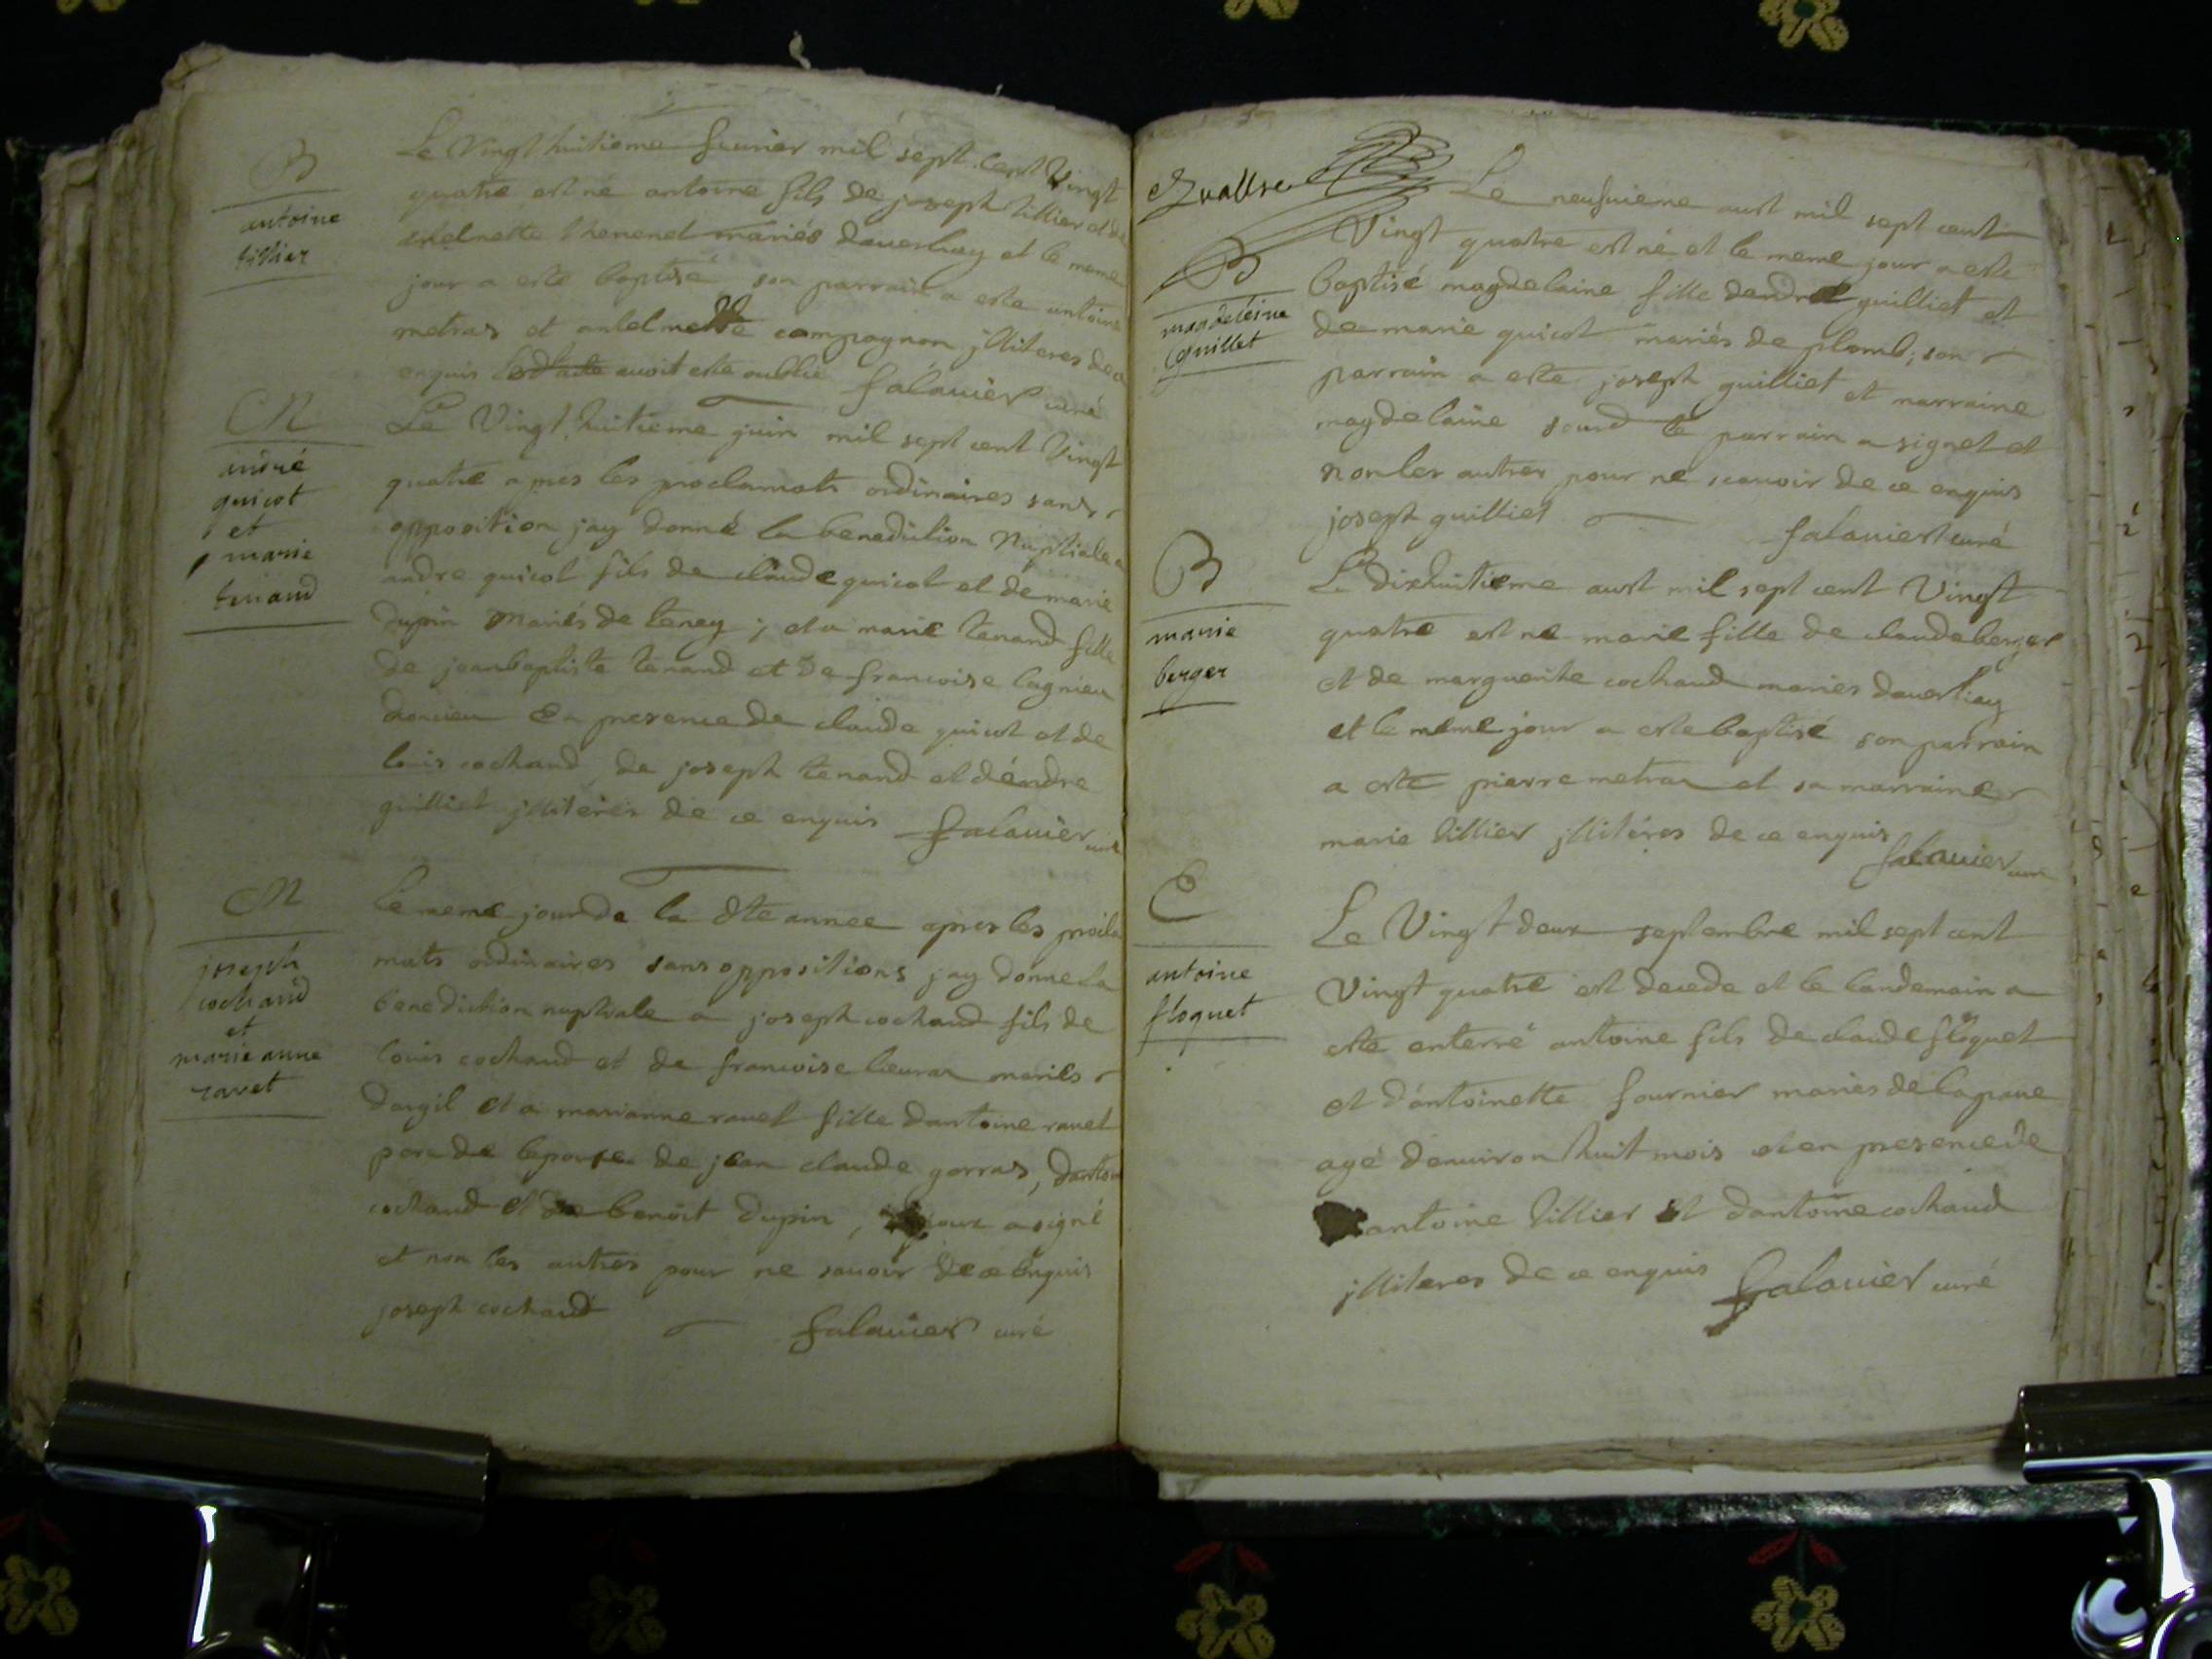 B
antoine
tillier
Le Vingt huitieme feurier mil sept cent Vingt
quatre est né antoine fils de joseph tillier et de
antelmette thenenet mariés dauerliay et le meme
jour a esté baptisé son parrain a esté antoine
metras et antelmette compagnon jlliteres de ce
enquis auoit esté oublié falauier curé
M
andré
guicot
et
marie
tenand
Le Vingt huitieme juin mil sept cent Vingt
quatre apres les proclamats ordinaires sans
opposition jay donné la benediction Nuptiale a
andre guicot fils de claude guicot et de marie
dupin mariés de teney ; et a marie tenand fille
de jeanbaptiste tenand et de francoise lagnieu
doncieu En presence de claude guicot et de
louis cochaud, de joseph tenand et déndre
guilliet jlliterés de ce enquis falauier curé
M
joseph
cochaud
et
marie anne
ravet
Le meme jour de la dte annee apres les procla
mats ordinaires sans oppositions jay donne la
benediction nuptiale a joseph cochaud fils de
louis cochaud et de francoise lieuras mariés
dargil et a marianne rauet fille dantoine rauet
pere de lepouse de jean claude gorras, dantoin
cochaud et de benoit dupin , epoux a signé
et non les autres pour ne sauoir de ce enquis
joseph cochaud falauier curé
Le neufuieme aust mil sept cent
Vingt quatre est né et le meme jour a esté
B
magdeleine
Guillet
baptisé magdelaine fille dendré guilliet et
de marie guicot mariés de plomb; son
parrain a esté joseph guilliet et marraine
magdelaine sourd le parrain a signet et
non les autres pour ne scauoir de ce enquis
joseph guilliet falauier curé
B
marie
berger
Le dixhuitieme aust mil sept cent Vingt
quatre est né marie fille de claude berger
et de marguerite cochaud mariés dauerliay
et le meme jour a esté baptisé son parrain
a esté pierre metras et sa marraine
marie tillier jlliteres de ce enquis
falauier curé
E
antoine
floquet
Le Vingt deux septembre mil sept cent
Vingt quatre est decede et le landemain a
esté enterré antoine fils de claude floquet
et d'antoinette fournier mariés de lapaue
agé denuiron huit mois et en presence de
antoine tillier et dantoine cochaud
jlliteres de ce enquis falauier curé